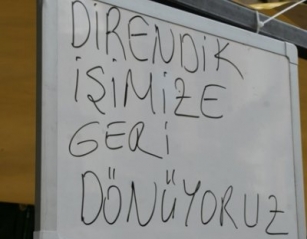 DİRENDİK
İŞİMİZE
GERİ
DÖNÜYORUZ